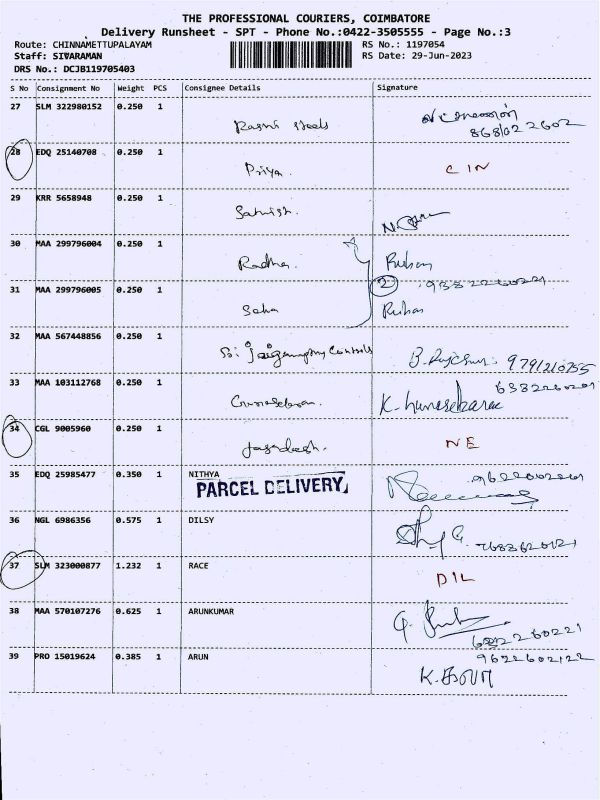 THE PROFESSIONAL COURIERS, COIMBATORE
Delivery Runsheet - SPT - Phone No.:0422-3505555 - Page No.:3
Route: CHINNAMETTUPALAYAM RS No.: 1197054
Staff: SIVARAMAN RS Date: 29-Jun-2023
DRS No.: DCJB119705403
S No Consignment No Weight PCS Consignee Details Signature
27 SLM 322980152 0.250 1
Rashi Steels
28 EDQ 25140708 0.250 1
Priya. CIN
29 KRR 5658948 0.250 1
Sathish.
30 MAA 299796004 0.250 1
Radha.
2
31 MAA 299796005 0.250 1
Saha
32 MAA 567448856 0.250 1
Controls 9791210755
33 MAA 103112768 0.250 1
Gunasekaran. K. Gunasekaran
34 CGL 9005960 0.250 1
Jagadeesh. NE
35 EDQ 25985477 0.350 1 NITHYA
PARCEL DELIVERY
36 NGL 6986356 0.575 1 DILSY
37 SLM 323000877 1.232 1 RACE
DIL
38 MAA 570107276 0.625 1 ARUNKUMAR
39 PRO 15019624 0.385 1 ARUN 9622602122